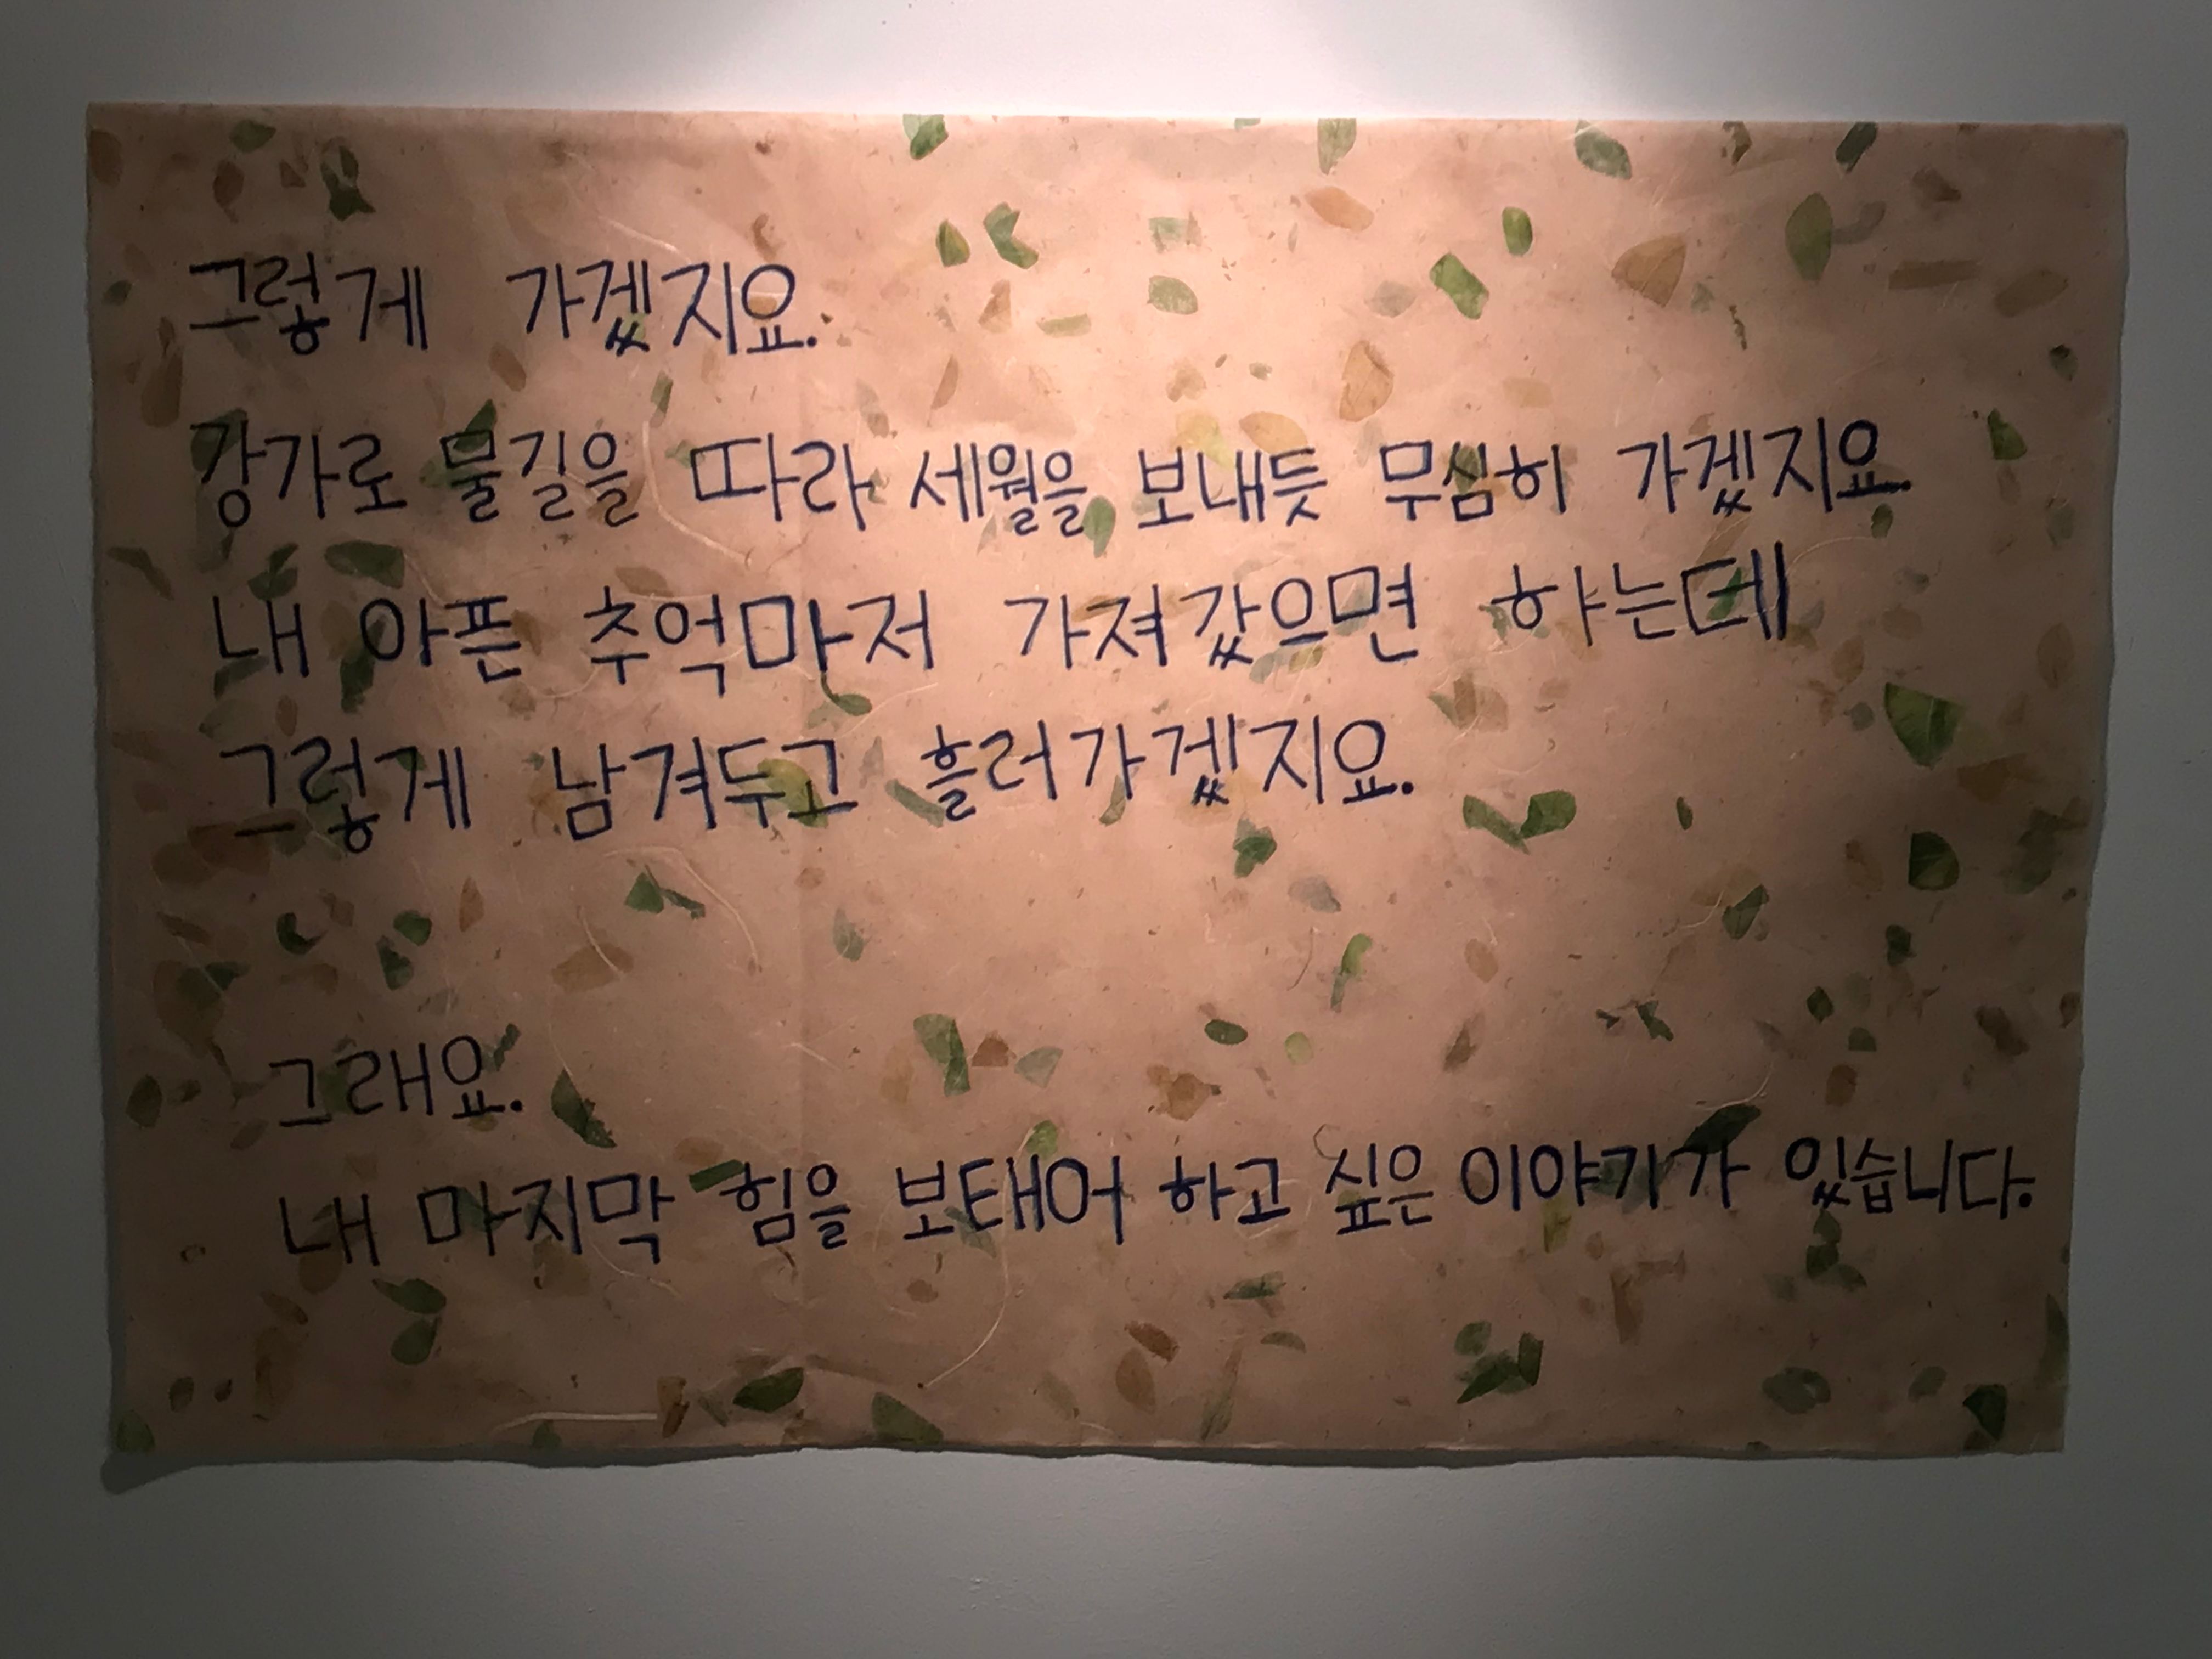 그렇게 가겠지요.
강가로 물길을 따라 세월을 보내듯 무심히 가겠지요.
내 아픈 추억마저 가져갔으면 하는데
그렇게 남겨두고 흘러가겠지요.
그래요.
내 마지막 힘을 보태어 하고 싶은 이야기가 있습니다.